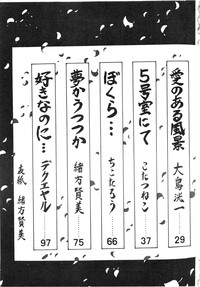 愛のある風景
大島洋一
29
5号室にて
こたつねこ
37
ぼくら…
ちこたろう
66
夢かうつつか
緒方賢美
75
好きなのに…
デクエヤル
97
表紙
緒方賢美